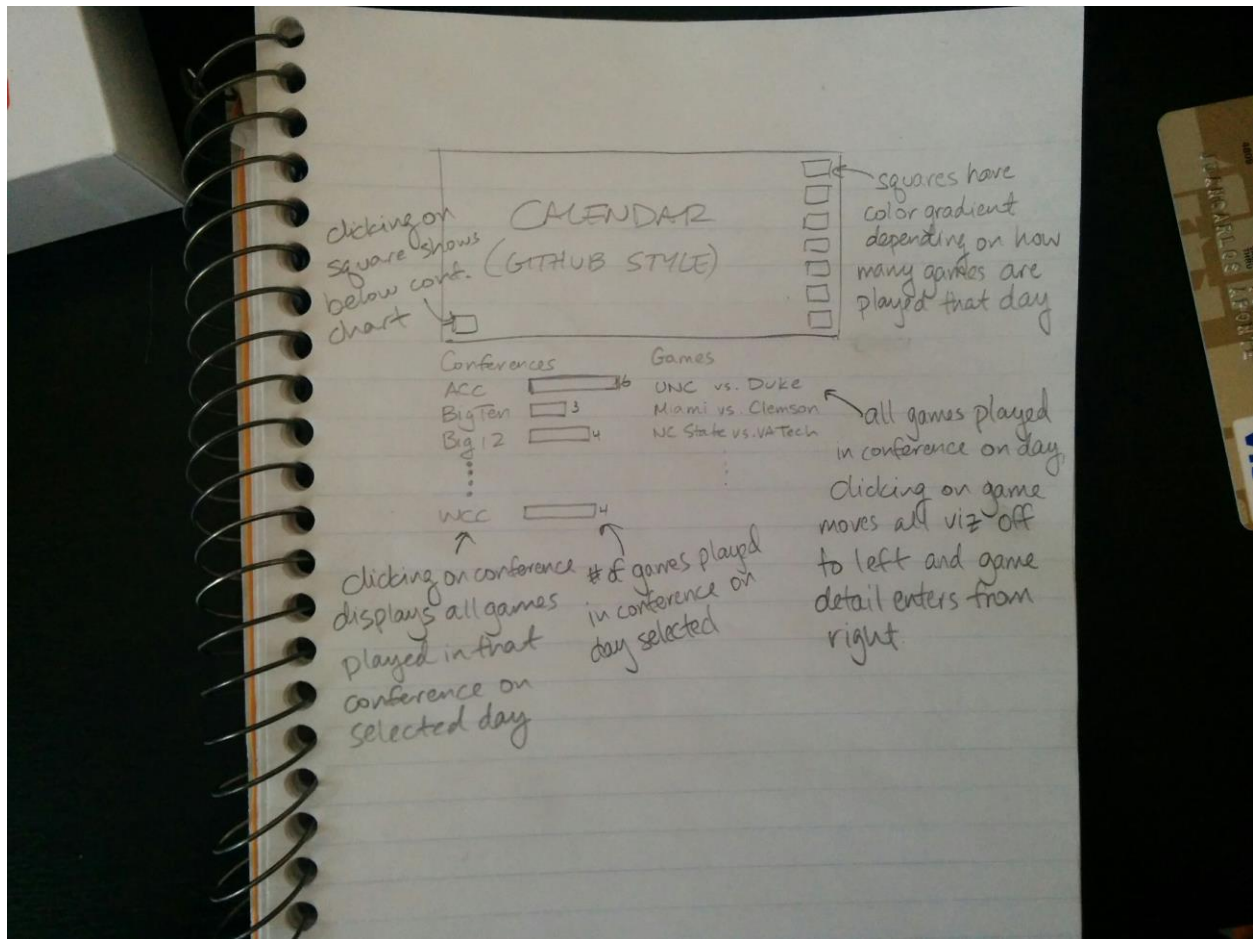 CALENDAR
(GITHUB STYLE)
clicking on
square shows
below conf.
chart
squares have
color gradient
depending on how
many games are
played that day
Conferences
ACC 6
BigTen 3
Big 12 4
WCC 4
Games
UNC vs. Duke
Miami vs. Clemson
NC State vs. VA Tech
all games played
in conference on day,
clicking on game
moves all viz off
to left and game
detail enters from
right.
clicking on conference
displays all games
played in that
conference on
selected day
# of games played
in conference on
day selected